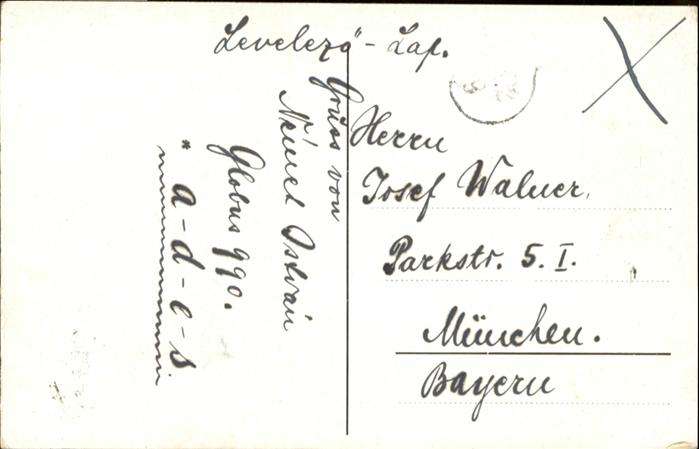 Levelező-Lap.
Gruss von
Német István
Globus 990.
* a-d-e-s
Herrn
Josef Walner.
Parkstr. 5. I.
München.
Bayern